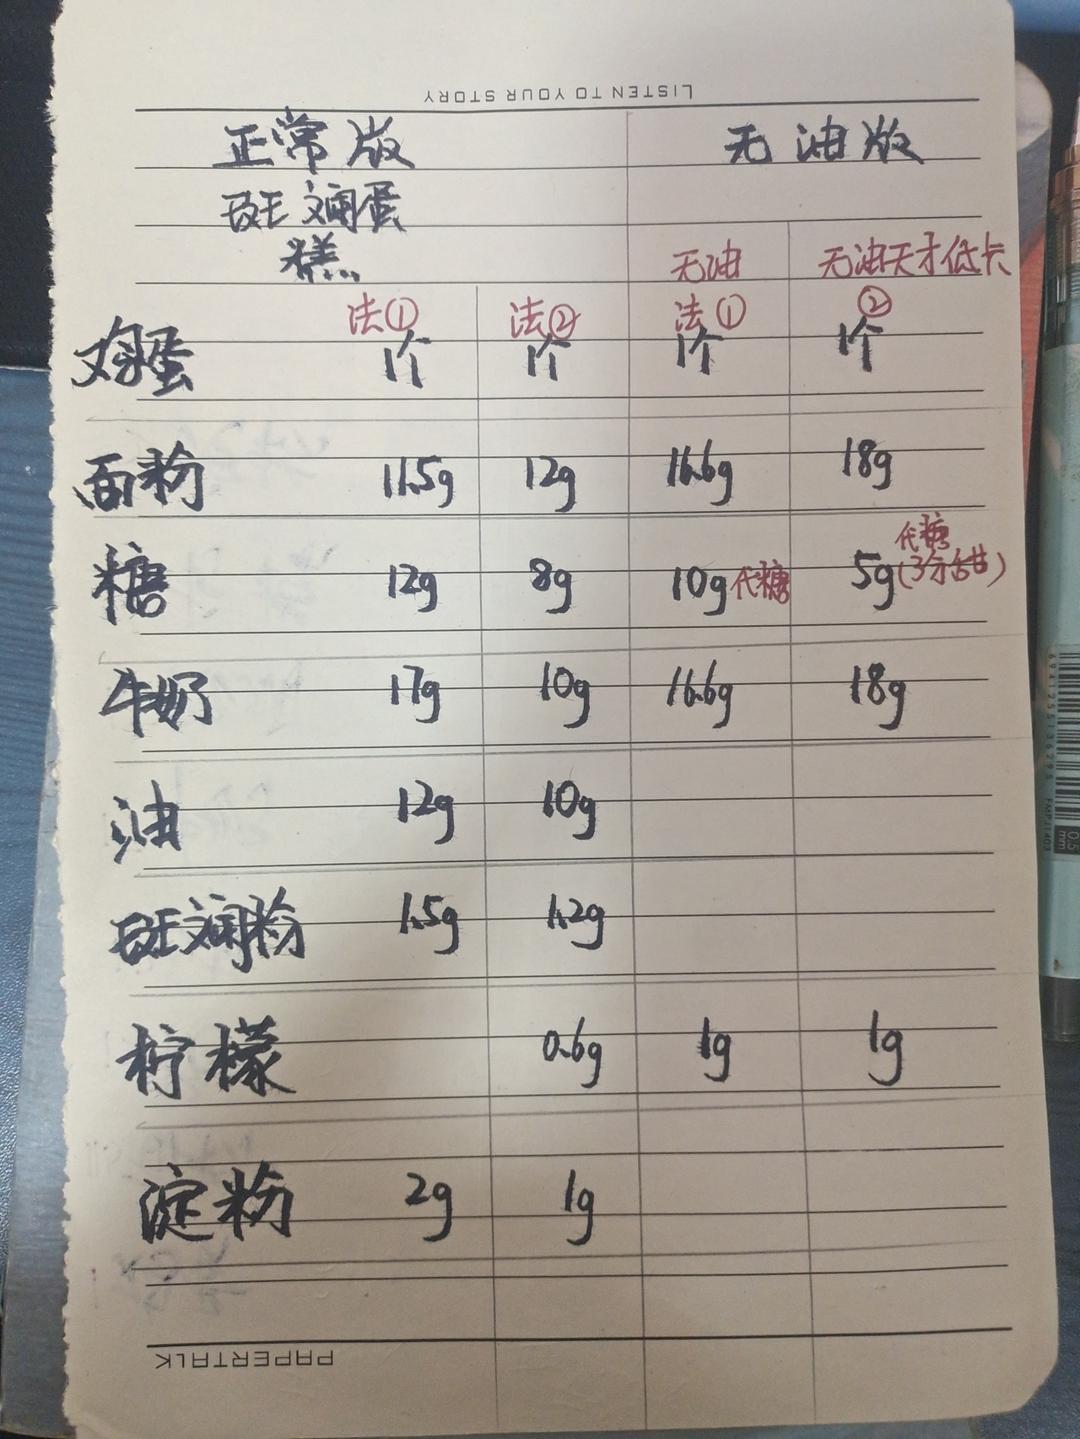 LISTEN TO YOUR STORY
正常版 无油版
斑斓蛋
糕 无油 无油天才低卡
法① 法② 法① ②
鸡蛋 1个 1个 1个 1个
面粉 11.5g 12g 16.6g 18g
糖 12g 8g 10g代糖 5g代糖(3分甜)
牛奶 17g 10g 16.6g 18g
油 12g 10g
斑斓粉 1.5g 1.2g
柠檬 0.6g 1g 1g
淀粉 2g 1g
PAPERTALK
6941255136295
0.5
mm